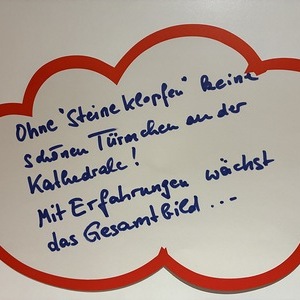 Ohne "Steine klopfen" keine
schönen Türmchen an der
Kathedrale!
Mit Erfahrungen wächst
das Gesamtbild ...